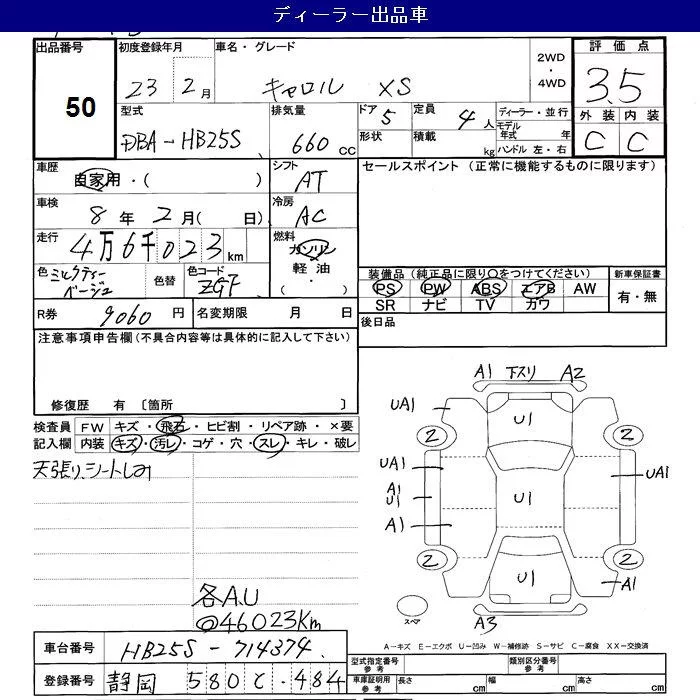 ディーラー出品車
出品番号 初度登録年月 車名・グレード 2WD・4WD 評価点
50 23 2月 キャロル XS 3.5
型式 排気量 ドア 5 定員 4人 ディーラー・並行 外装 内装
DBA-HB25S 660cc 形状 積載 kg モデル年式 年 C C
ハンドル 左・右
車歴 シフト セールスポイント (正常に機能するものに限ります)
自家用・( ) AT
車検 冷房
8年 2月( 日) AC
走行 燃料
4万6千023km ガソリン
軽油・( )
色 ミルクティーベージュ 色替 色コード ZGF 装備品 (純正品に限り○をつけてください) 新車保証書
PS PW ABS エアB AW 有・無
SR ナビ TV カワ
R券 9060円 名変期限 月 日 後日品
注意事項申告欄(不具合内容等は具体的に記入して下さい)
修復歴 有 〔箇所 〕
検査員 FW キズ・飛石・ヒビ割・リペア跡・×要
記入欄 内装 キズ・汚レ・コゲ・穴・スレ・キレ・破レ
天張り、シートしみ
各A.U
@46023Km
A1 下スリ A2
UA1 U1
2 2
UA1 UA1
A1 U1 U1
A1
2 2
U1 A1
スペア A3
A-キズ E-エクボ U-凹み W-補修跡 S-サビ C-腐食 XX-交換済
車台番号 HB25S-714374
登録番号 静岡 580 て・484
型式指定番号 参考 類別区分番号 参考
車庫証明用 参考 長さ cm 幅 cm 高さ cm